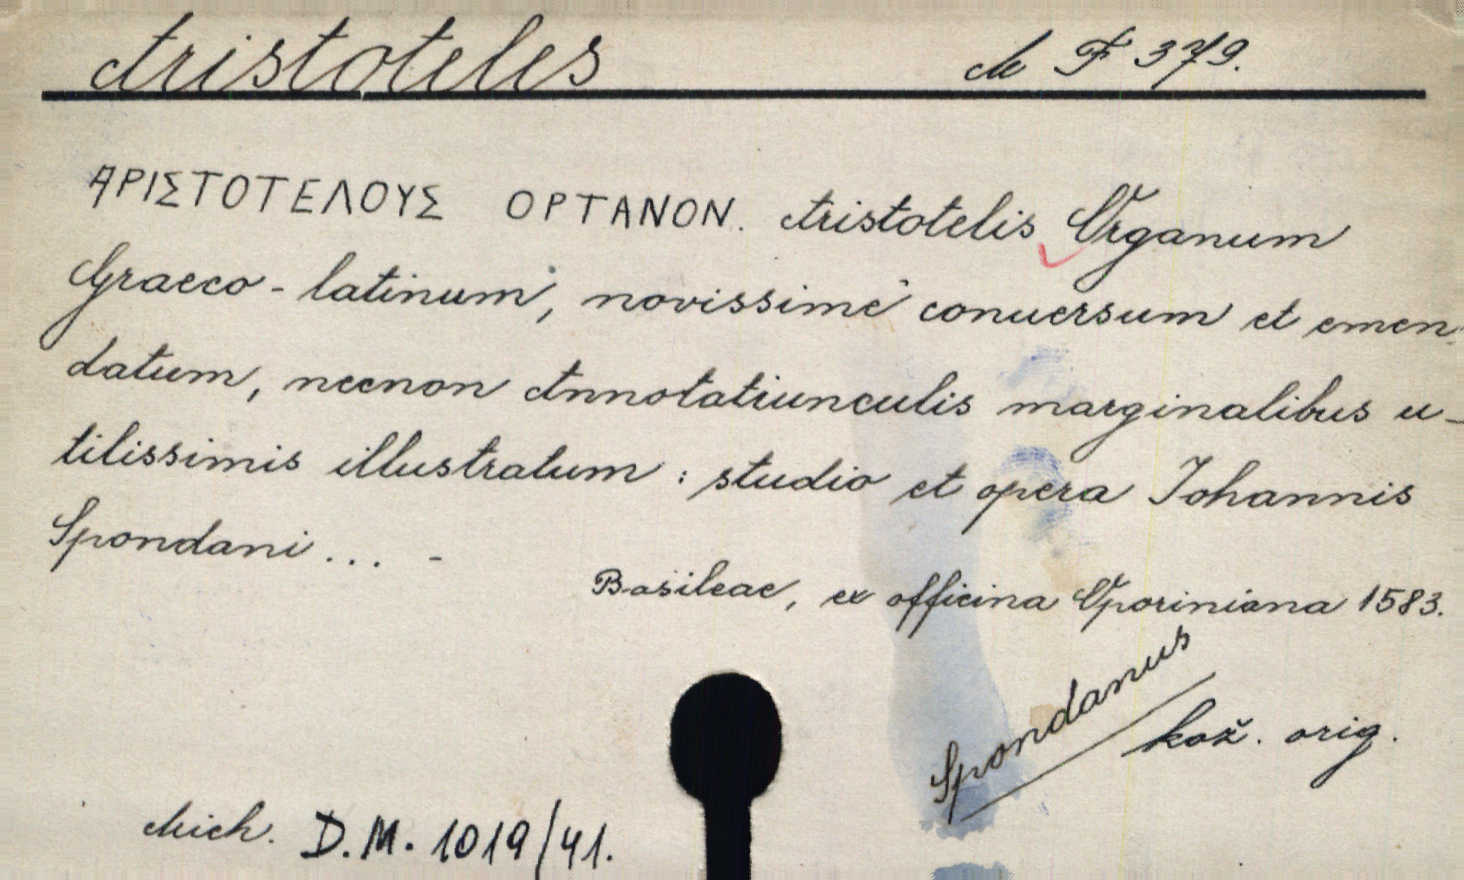 Aristoteles M F 379.
ΑΡΙΣΤΟΤΕΛΟΥΣ ΟΡΤΑΝΟΝ. Aristotelis Organum
Graeco-latinum, novissimè conuersum et emen-
datum, necnon Annotatiunculis marginalibus u-
tilissimis illustratum : studio et opera Iohannis
Spondani ... -
Basileae, ex officina Oporiniana 1583.
Spondanus
kož. orig.
Mich. D.M. 1019/41.